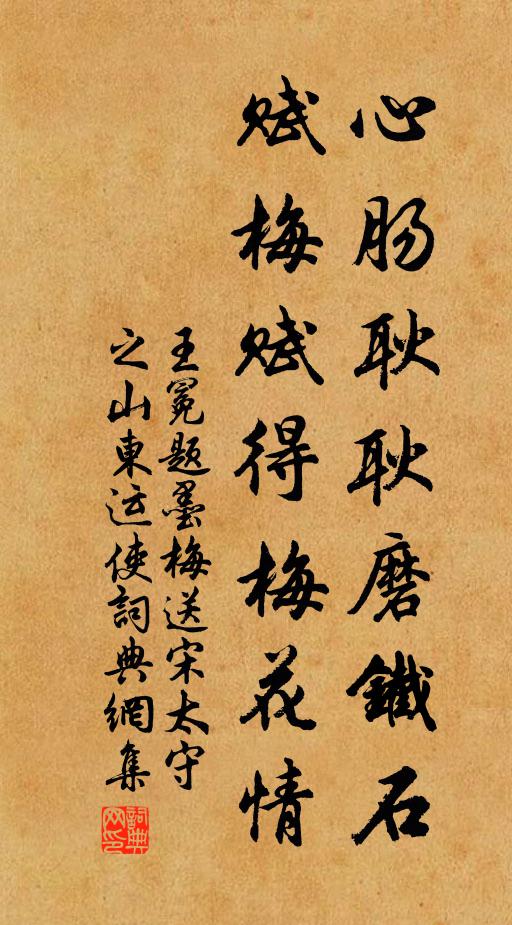 心肠耿耿磨鐵石
赋梅赋得梅花情
王冕题墨梅送宋太守
之山東运使詞典網集
詞典
网印